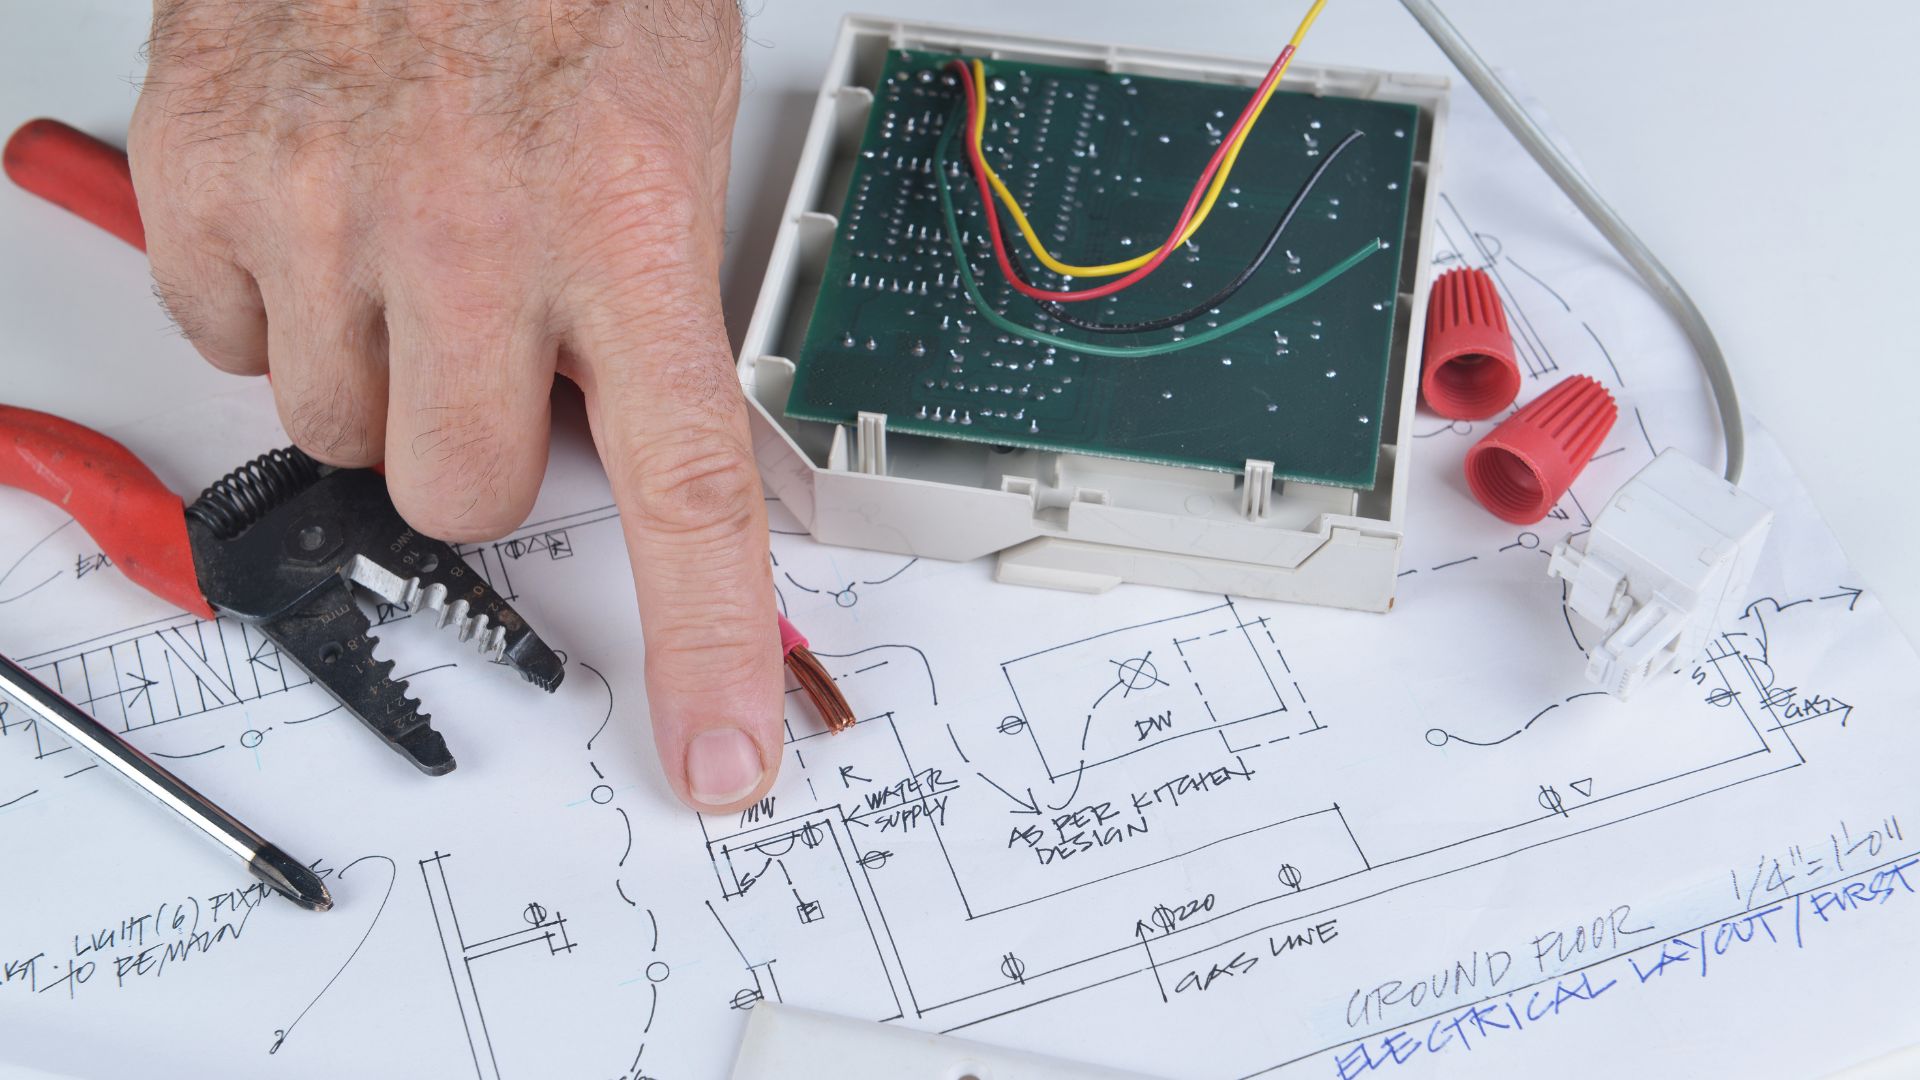 AWG
18
16
mm
1.8
1.4
2.2
DN
F
R
WATER
SUPPLY
MW
S
F
DW
AS PER KITCHEN
DESIGN
S
GAS
220
GAS LINE
LIGHT (6)
TO REMAIN
GROUND FLOOR 1/4"=1'-0"
ELECTRICAL LAYOUT / FIRST